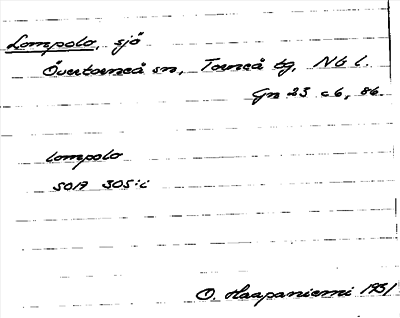 Lompolo, sjö
Övertorneå sn, Torneå tg, Nb l.
Gn 23 c6, 86.
lompolo
SOIA 305:i
O. Haapaniemi 1931